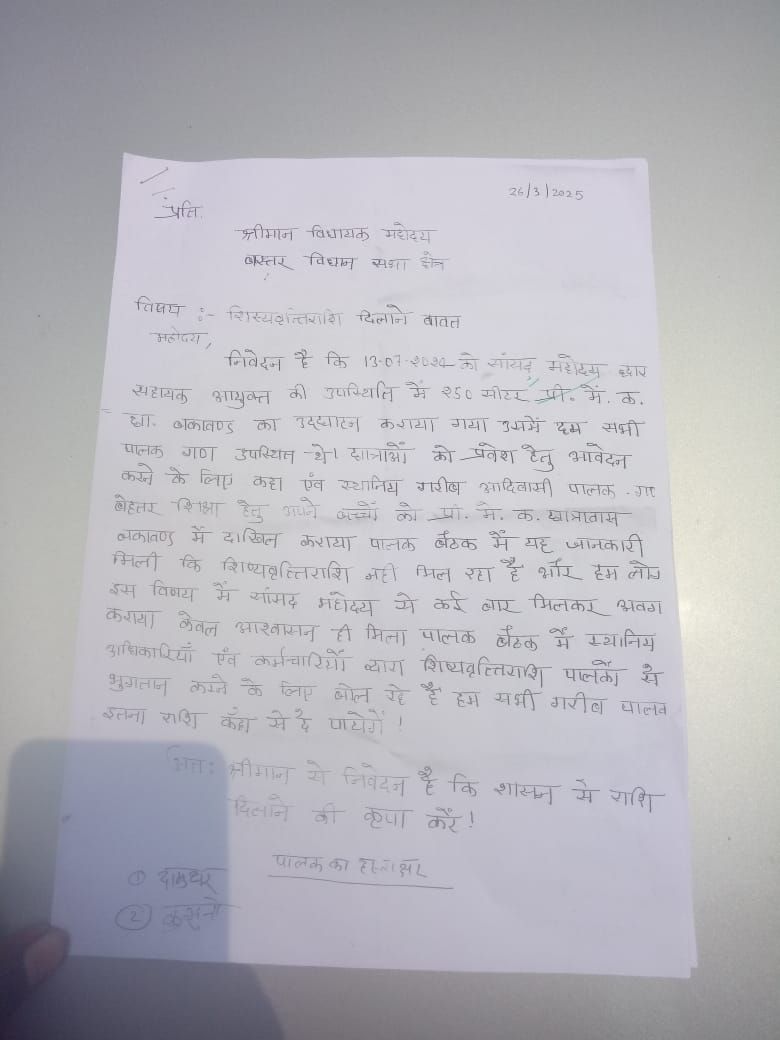 26/3/2025
प्रति.
श्रीमान विधायक महोदय
बस्तर विधान सभा क्षेत्र
विषय :- शिस्यवृत्तिराशि दिलाने बावत
महोदय,
निवेदन है कि 13-07-2024 को सांसद महोदय द्वार
सहायक आयुक्त की उपस्थिति में 250 सीटर प्री. मे. क.
छा. बकावण्ड का उद्घाटन कराया गया उसमें हम सभी
पालक गण उपस्थित थे। छात्राओं को प्रवेश हेतु आवेदन
करने के लिए कहा एंव स्थानिय गरीब आदिवासी पालक गण
बेहतर शिक्षा हेतु अपने बच्चों को प्री. मे. क. छात्रावास
बकावण्ड में दाखिल कराया पालक बैठक में यह जानकारी
मिली कि शिष्यवृत्तिराशि नही मिल रहा है और हम लोग
इस विषय में सांसद महोदय से कई बार मिलकर अवग
कराया केवल आश्वासन ही मिला पालक बैठक में स्थानिय
अधिकारियों एंव कर्मचारियों द्वारा शिष्यवृत्तिराशि पालकों से
भुगतान करने के लिए बोल रहे है हम सभी गरीब पालक
इतना राशि कँहा से दे पायेगें !
अतः श्रीमान से निवेदन है कि शासन से राशि
दिलाने की कृपा करें !
पालक का हस्ताक्षर
①
②